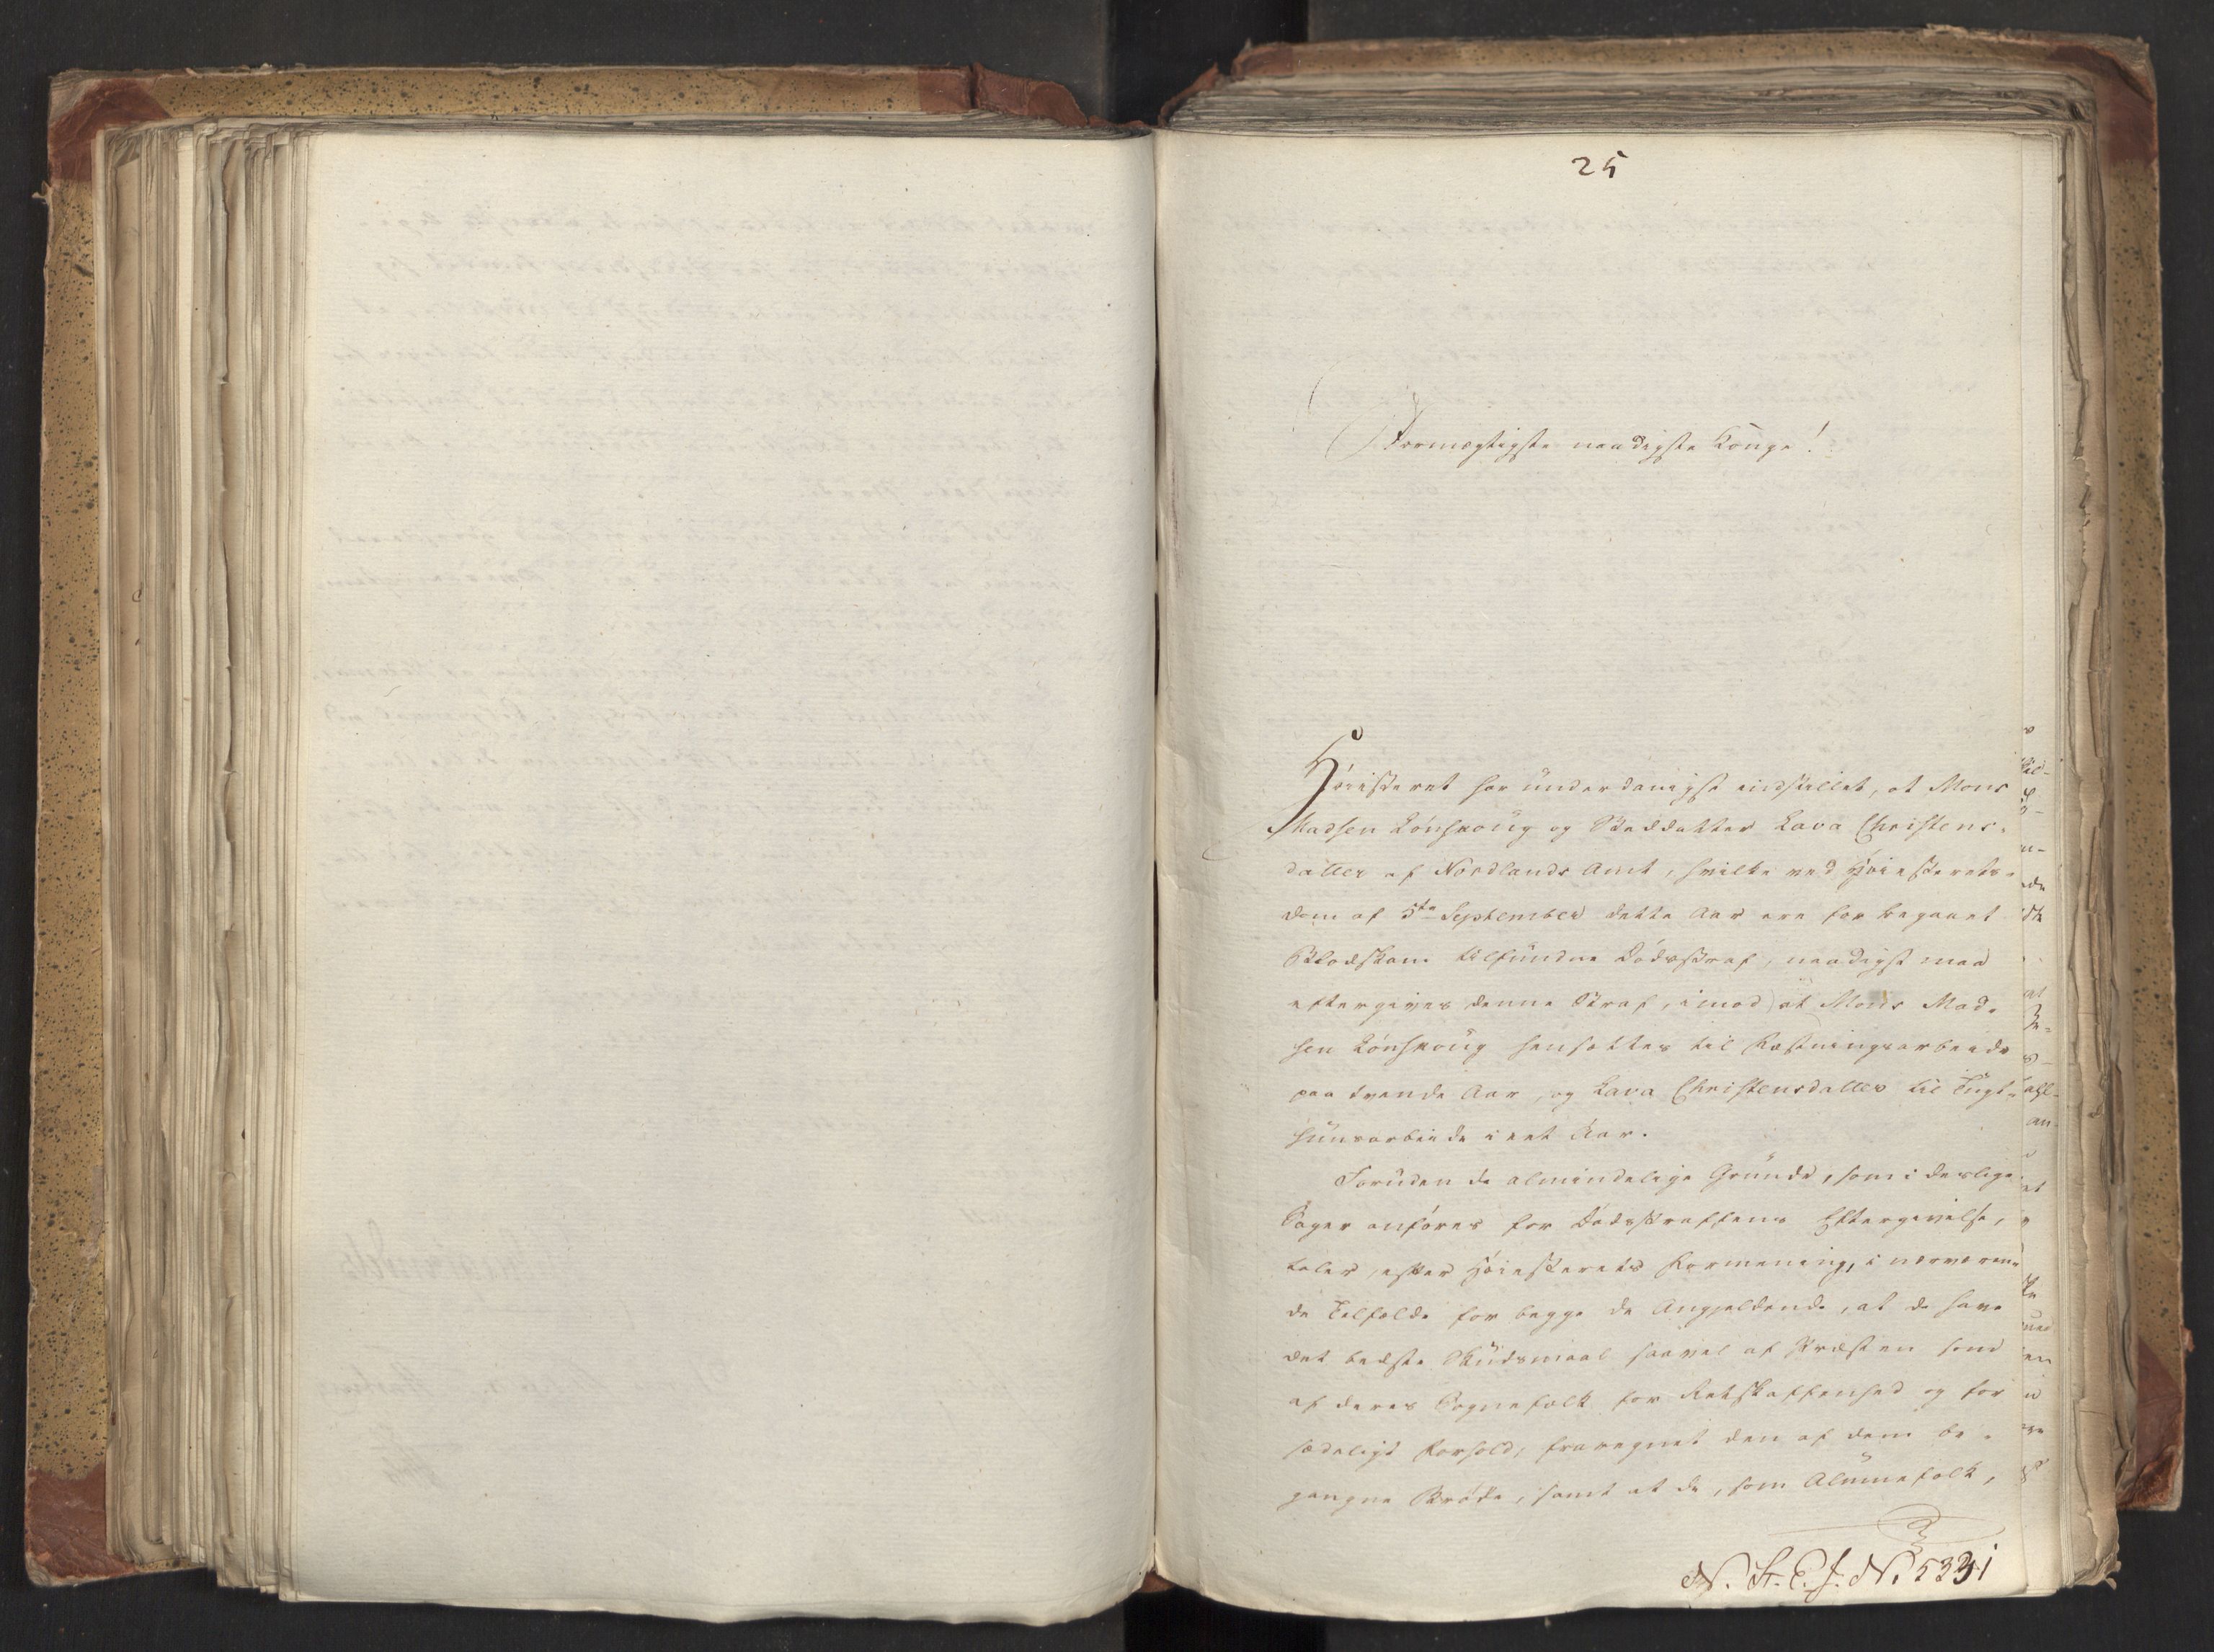 25
Stormægtigste naadigste Konge!
Høiesteret har underdanigst indstillet, at Mons
Madsen Lønskoug og Steddatter Lava Christens-
datter af Nordlands Amt, hvilke ved Høiesterets-
dom af 5te September dette Aar ere for begaaet
Blodskam tilfundne Dødsstraf, naadigst maa
eftergives denne Straf, imod at Mons Mad-
sen Lønskoug hensættes til Fæstningsarbeide
paa tvende Aar, og Lava Christensdatter til Tugt-
huusarbeide i eet Aar.
Foruden de almindelige Grunde, som i deslige
Sager anføres for Dødsstraffens Eftergivelse,
taler, efter Høiesterets Formening, i nærværen-
de Tilfælde for begge de Angjeldende, at de have
det bedste Skudsmaal saavel af Præsten som
af deres Sognefolk for Retskaffenhed og for
sædeligt Forhold, fraregnet den af dem be-
gangne Brøde, samt at de, som Almuefolk,
N. St. E. J. No 5331